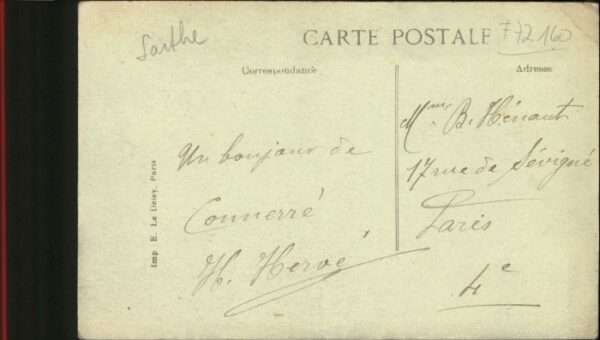 Sarthe
CARTE POSTALE
772160
Correspondance
Adresse
Un bonjour de
Connerré
H. Hervé
Imp E. Le Deley, Paris
Mme B. Hénaut
17 rue de Sévigné
Paris
4e